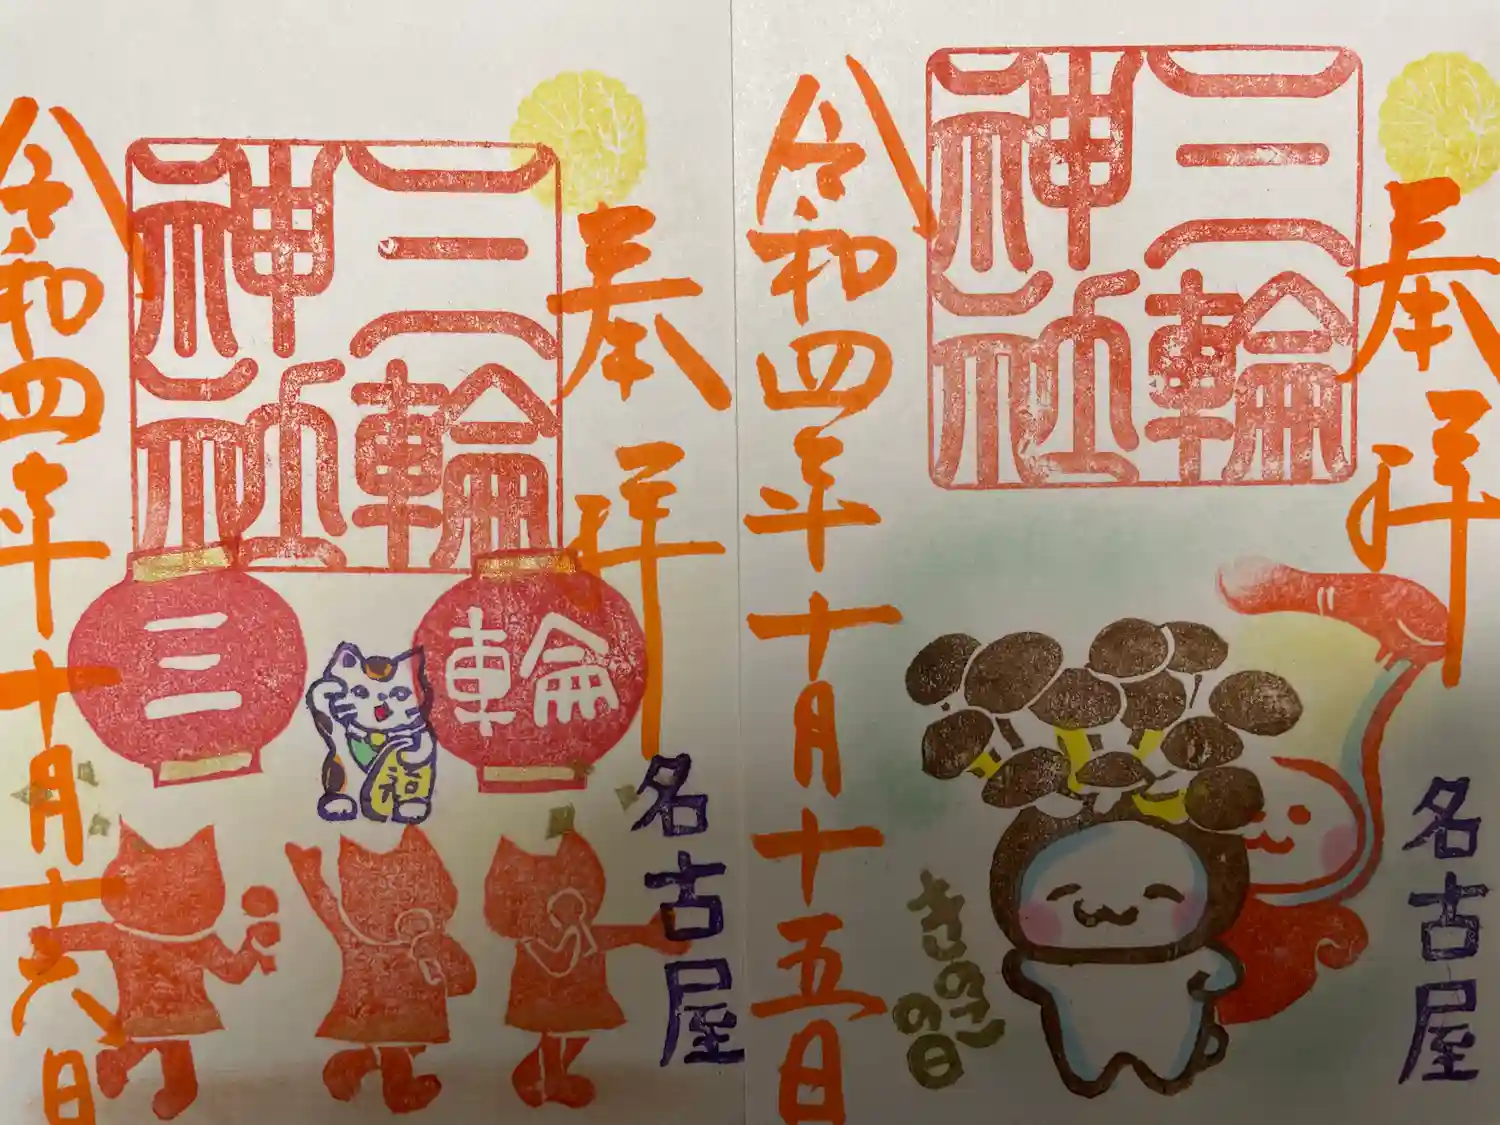 奉拝
三輪神社
三輪
福
名古屋
令和四年十月十六日
奉拝
三輪神社
名古屋
きのこの日
令和四年十月十五日